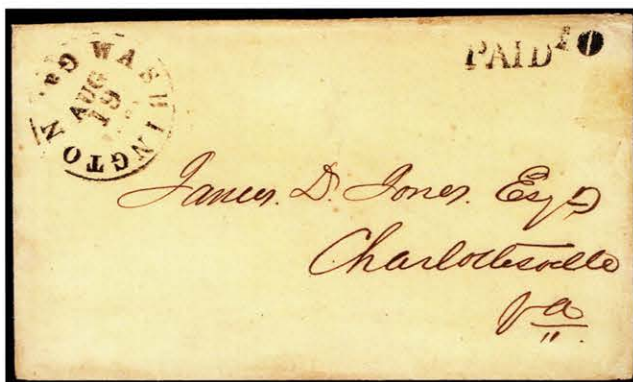 WASHINGTON Ga.
AUG
19
PAID 10
James. D. Jones. Esqr
Charlottesville
Va